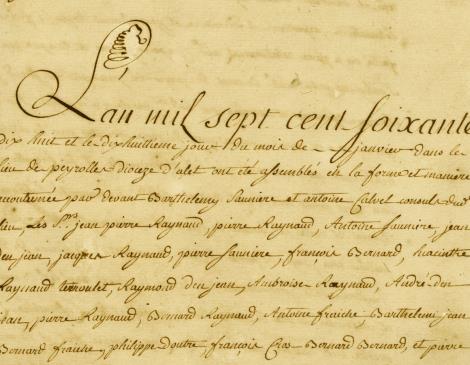 Lan mil sept cent soixante
dix huit et le dixhuitieme jour du mois de janvier dans le
lieu de peyrolles dioceze d'alet ont été assemblés en la forme et maniere
accoutumée par devant Barthelemy Sauniere et antoine Calvet consuls dud
lieu, Les Srs jean pierre Raynaud, pierre Raynaud, Antoine Sauniere, jean
den jean, jacques Raynaud, pierre Sauniere, françois Bernard, hiacinthe
Raynaud, Raymond den jean, Ambroise Raynaud, André den
jean, pierre Raynaud, Bernard Raynaud, Antoine fraiche, Barthelemi jean
Bernard fraisse, philippe Doutre, françois Cros Bernard Bernard, et pierre